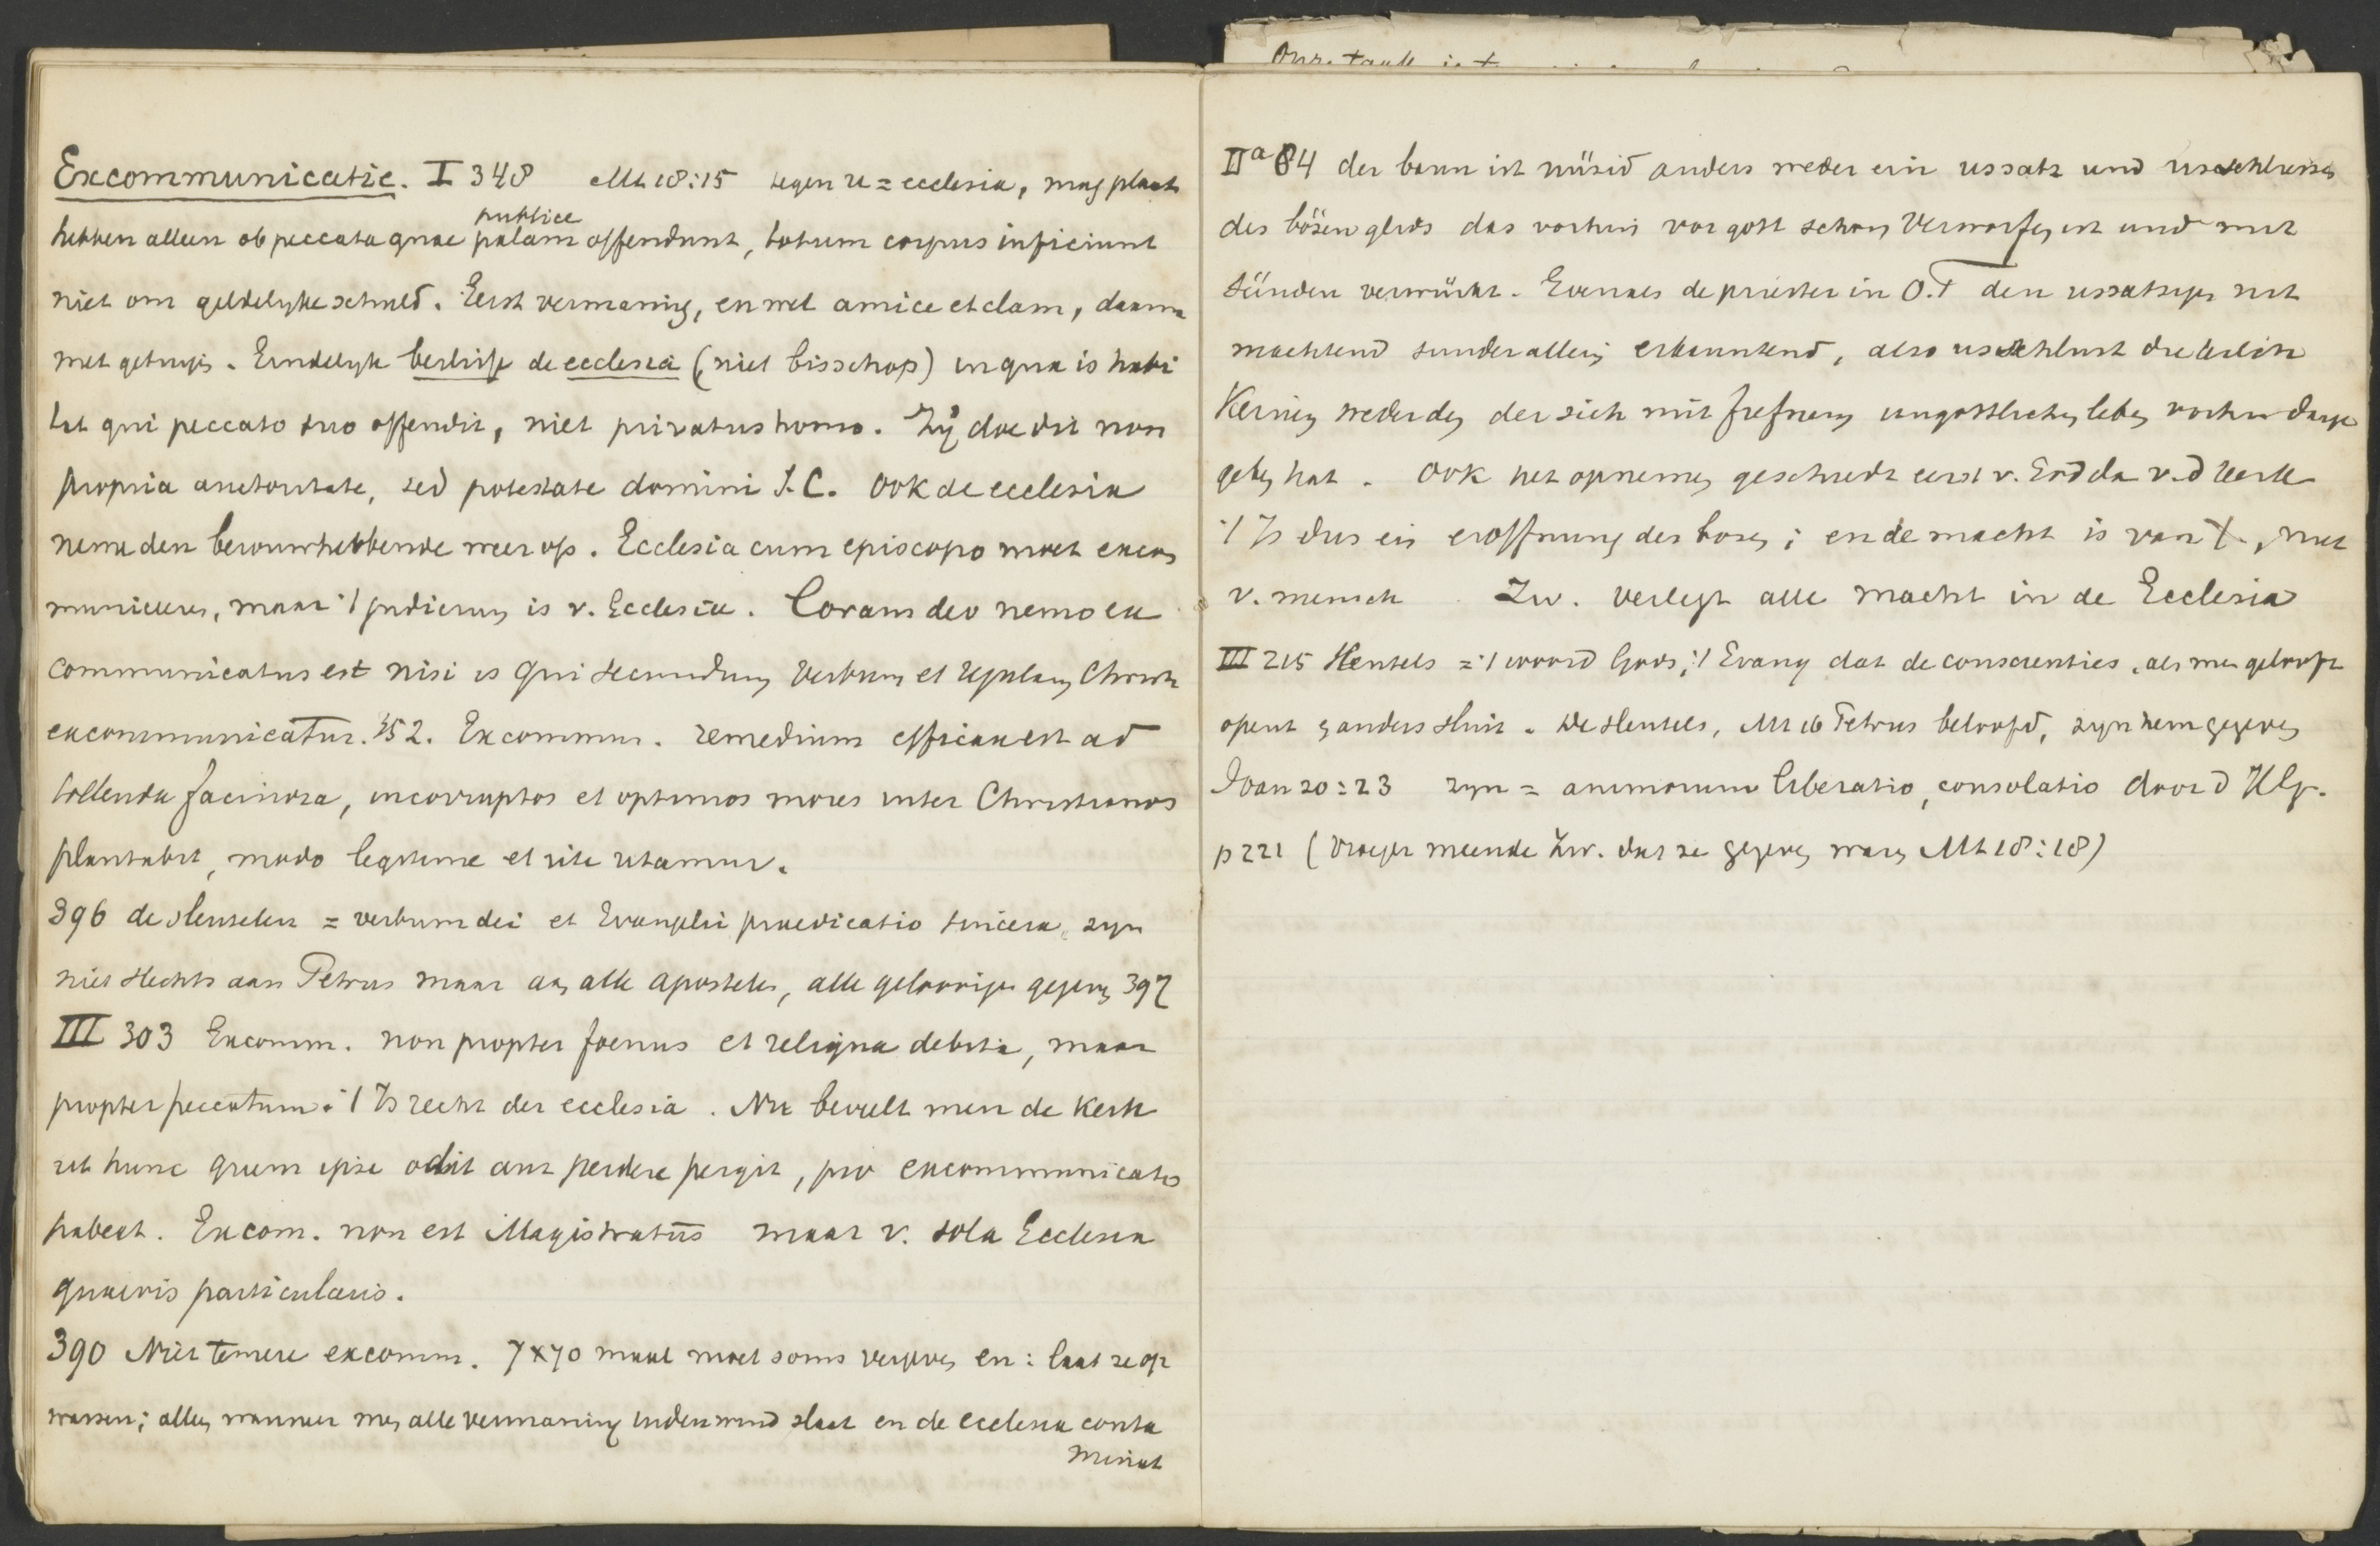 Onze taak is t
Excommunicatie. I 348 Mt 18:15 tegen u = ecclesia, mag plaats
publice
hebben alleen ob peccata quae palam offendunt, totum corpus inficiunt
niet om geldelyke schuld. Eerst vermaning, en wel amice et clam, daarna
met getuigen. Eindelyk beslisse de ecclesia (niet bisschop) in qua is habi
tat qui peccato suo offendit, niet privatus homo. Zij doe dit non
propria auctoritate, sed potestate domini J.C. Ook de ecclesia
neme den berouwhebbende weer op. Ecclesia cum episcopo moet excom
municeren, maar 't judicium is v. Ecclesia. Coram deo nemo ex
communicatus est nisi is qui secundum verbum et regulam Christi
excommunicatur. 352. Excommun. remedium efficax est ad
tollenda facinora, incorruptos et optimos mores inter Christianos
plantabit, modo legitime et rite utamur.
396 de sleutelen = verbum dei et Evangelii praedicatio sincera, zyn
niet slechts aan Petrus maar aan alle apostelen, alle geloovigen gegeven 397
III 303 Excomm. non propter foenus et reliqua debita, maar
propter peccatum. 't Is recht der ecclesia. Nu beveelt men de Kerk
ut hunc quem ipse odit aut perdere pergit, pro excommunicato
habeat. Excom. non est Magistratus maar v. sola Ecclesia
quaevis particularis.
390 Niet temere excomm. 7x70 maal moet soms vergeven en: laat ze op
wassen; alleen wanneer men alle vermaning in den wind slaat en de ecclesia conta
minat
IIa 84 der bann ist nüsid anders weder ein ussatz und usschliessen
des bösen glids das vorhin vor gott schon verworfen ist und mit
sünden verwürkt. Evenals de priester in O.T den ussatzigen nit
machtend sunder allein erkanntend, also usschlust die kilch
Keinen weder den der sich mit frefnem ungottlichen leben vorhin darge
geben hat. Ook het opnemen geschiedt eerst v. God da v. d Kerk
't Is dus ein eroffnung des bosen; en de macht is van X, niet
v. mensch Zw. verlegt alle macht in de Ecclesia
III 215 sleutels = 't woord Gods, 't Evang dat de conscienties, als men gelooft
opent & anders sluit. De sleutels, Mt 16 Petrus beloofd, zyn hem gegeven
Joan 20:23 zyn = animorum liberatio, consolatio door d HG.
p 221 (vroeger meende Zw. dat ze gegeven waren Mt 18:18)